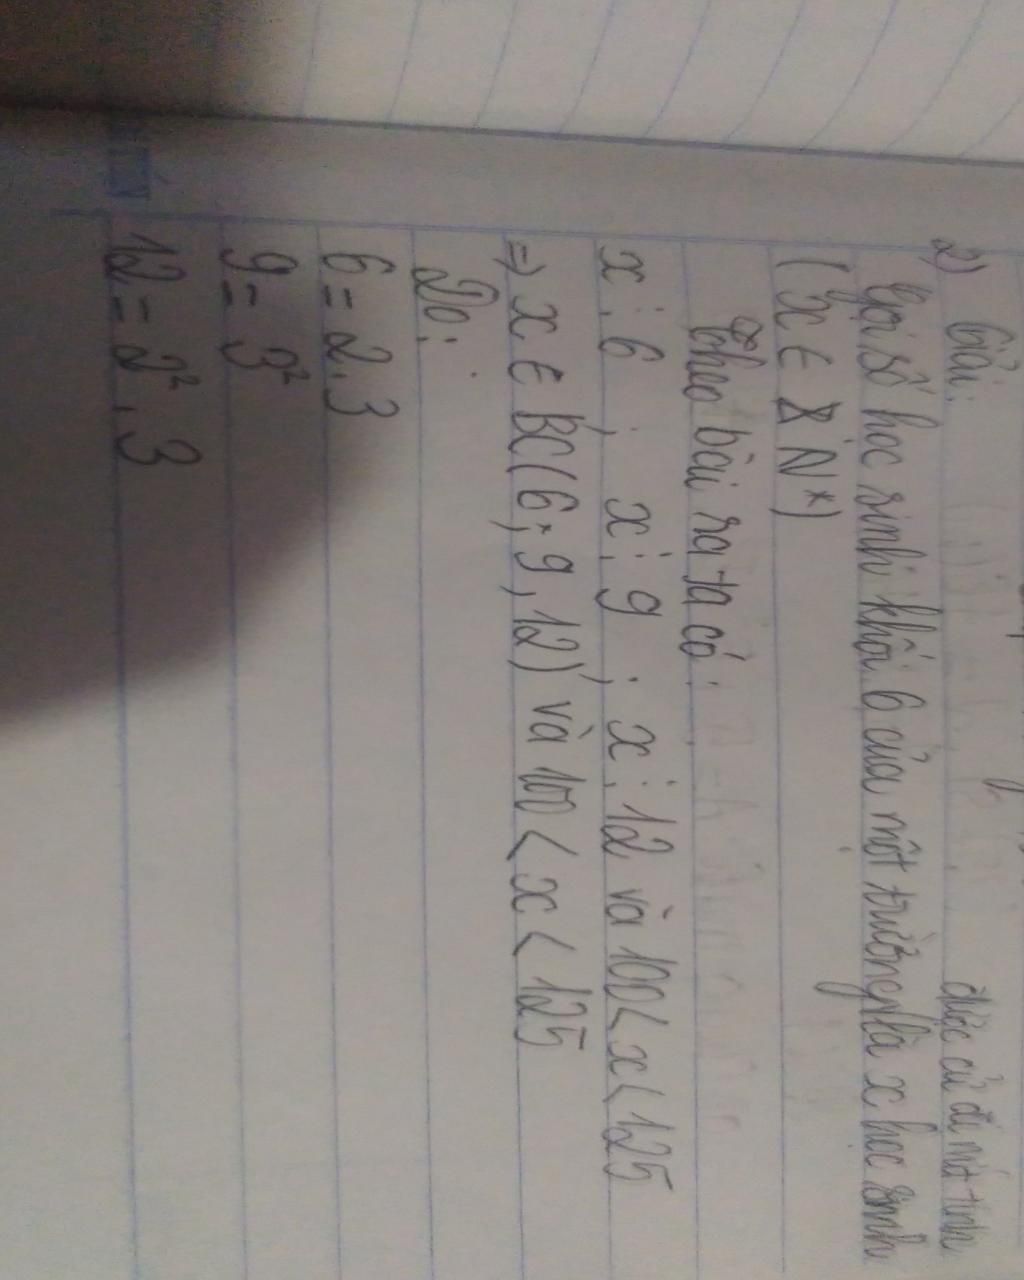 được cử đi mít tinh
2) Giải:
Gọi số học sinh khối 6 của một trường là x học sinh
(x ∈ N*)
Theo bài ra ta có:
x ⋮ 6 ; x ⋮ 9 ; x ⋮ 12 và 100 < x < 125
⇒ x ∈ BC(6, 9, 12) và 100 < x < 125
Do:
6 = 2.3
9 = 3²
12 = 2².3